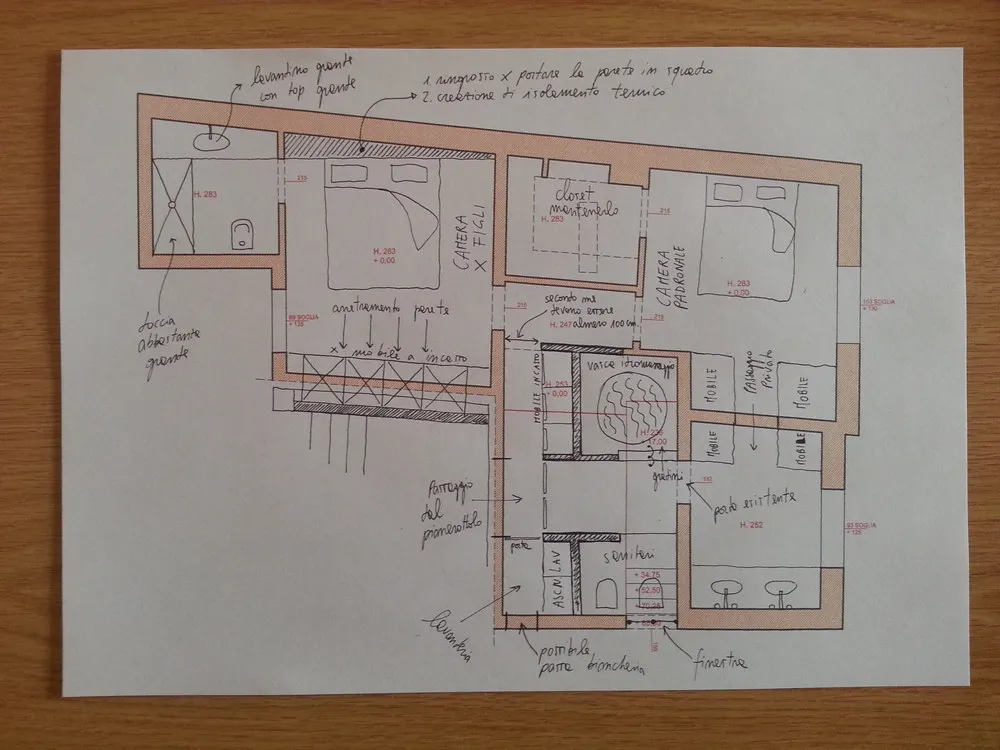 lavandino grande
con top grande
1. ringrosso x portare la parete in squadro
2. creazione di isolamento termico
H. 283
210
CAMERA
X FIGLI
H. 283
+ 0,00
closet
mantenerlo
H. 283
215
CAMERA
PADRONALE
H. 283
+ 0,00
doccia
abbastanza
grande
+ 135
arretramento parete
x mobile a incasso
210
secondo me
devono essere
H. 247 almeno 100 cm.
215
SOGLIA
+ 130
MOBILE INCASSO
H. 253
+ 0,00
vasca idromassaggio
17,00
MOBILE
PASSAGGIO
PRIVATO
MOBILE
MOBILE
MOBILE
gradini
porta esistente
H. 252
93 SOGLIA
+ 125
Passaggio
dal
pianerottolo
porta
ASCN. LAV
sanitari
+ 34,75
+ 52,50
+ 70,25
lavanderia
possibile
porta biancheria
finestra